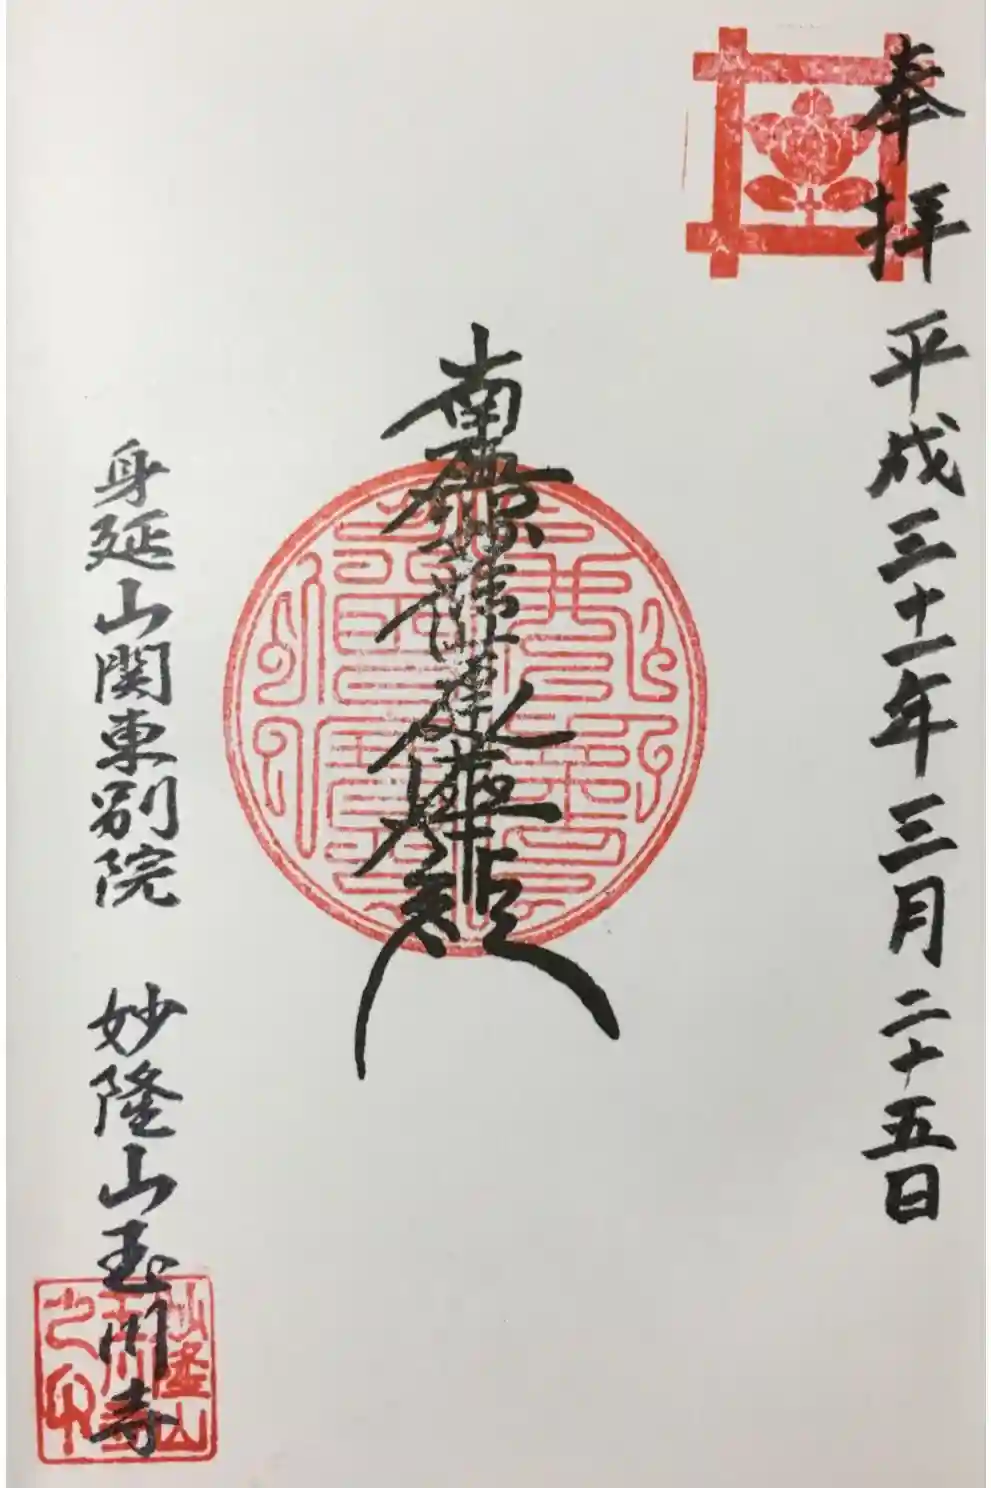 奉拝 平成三十一年三月二十五日
南無妙法蓮華経
身延山関東別院 妙隆山玉川寺
妙隆山
玉川寺
之印